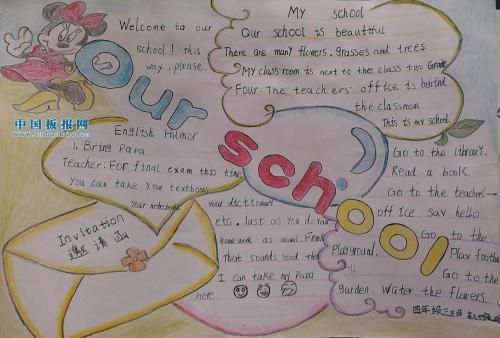 Welcome to our
school! This
way, please.
My school
Our school is beautiful
There are many flowers, grasses and trees.
My class room is next to the class two Grade
Four. The teachers' office is behind
the classroom
This is my school.
Our
school
中国板报网
www.cnbanbao.cn
English Humor
1. Bring Papa
Teacher: For final exam this time,
you can take your textbooks,
your notebooks
your dictionary
etc. Just as you do your
homework as usual.
That sounds good
I can take my Papa
here.
Invitation
邀请函
Go to the library.
Read a book.
Go to the teachers'
office. Say hello.
Go to the
Playground.
Play football
Go to the
garden. Water the flowers.
四年级三班